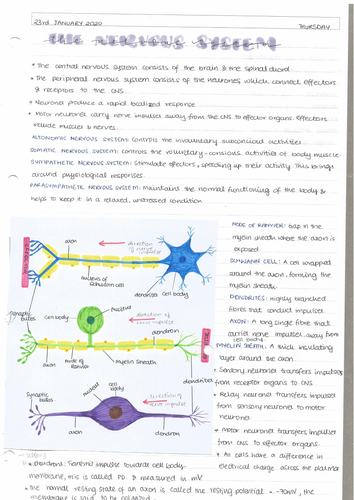 23rd JANUARY 2020
THURSDAY
THE NERVOUS SYSTEM
• The central nervous system consists of the brain & the spinal cord.
• The peripheral nervous system consists of the neurones which connect effectors
& receptors to the CNS.
• Neurones produce a rapid localised response.
• Motor neurones carry nerve impulses away from the CNS to effector organs. Effectors
include muscles & nerves.
AUTONOMIC NERVOUS SYSTEM: controls the involuntary subconscious activities.
SOMATIC NERVOUS SYSTEM: controls the voluntary-conscious activities of body muscle.
SYMPATHETIC NERVOUS SYSTEM: Stimulate effectors, speeding up their activity. This brings
around physiological responses.
PARASYMPATHETIC NERVOUS SYSTEM: maintains the normal functioning of the body &
helps to keep it in a relaxed, unstressed condition.
axon
direction of
nerve impulse
nucleus of
schwann cell
dendrites
cell body
Synaptic
bulbs
cell body
nucleus
direction of
nerve impulse
dendron
axon
Node of
Ranvier
Myelin Sheath
dendrites
Synaptic
bulbs
nucleus
cell
body
direction of
nerve impulse
axon
dendron
NODE OF RANVIER: Gap in the
myelin sheath where the axon is
exposed.
SCHWANN CELL: A cell wrapped
around the axon, forming the
myelin sheath.
DENDRITES: Highly branched
fibres that conduct impulses.
AXON: A long single fibre that
carries nerve impulses away from
cell body
MYELIN SHEATH: A thick insulating
layer around the axon.
• Sensory neurones transfers impulses
from receptor organs to CNS.
• Relay neurones transfers impulses
from sensory neurones to motor
neurones.
• Motor neurones transfers impulses
from CNS to effector organs.
• All cells have a difference in
electrical charge across the plasma
• dendrons: Transmit impulse towards cell body
membrane, this is called PD & measured in mV.
• the normal resting state of an axon is called the resting potential = -70mV, the
membrane is said to be polarised.